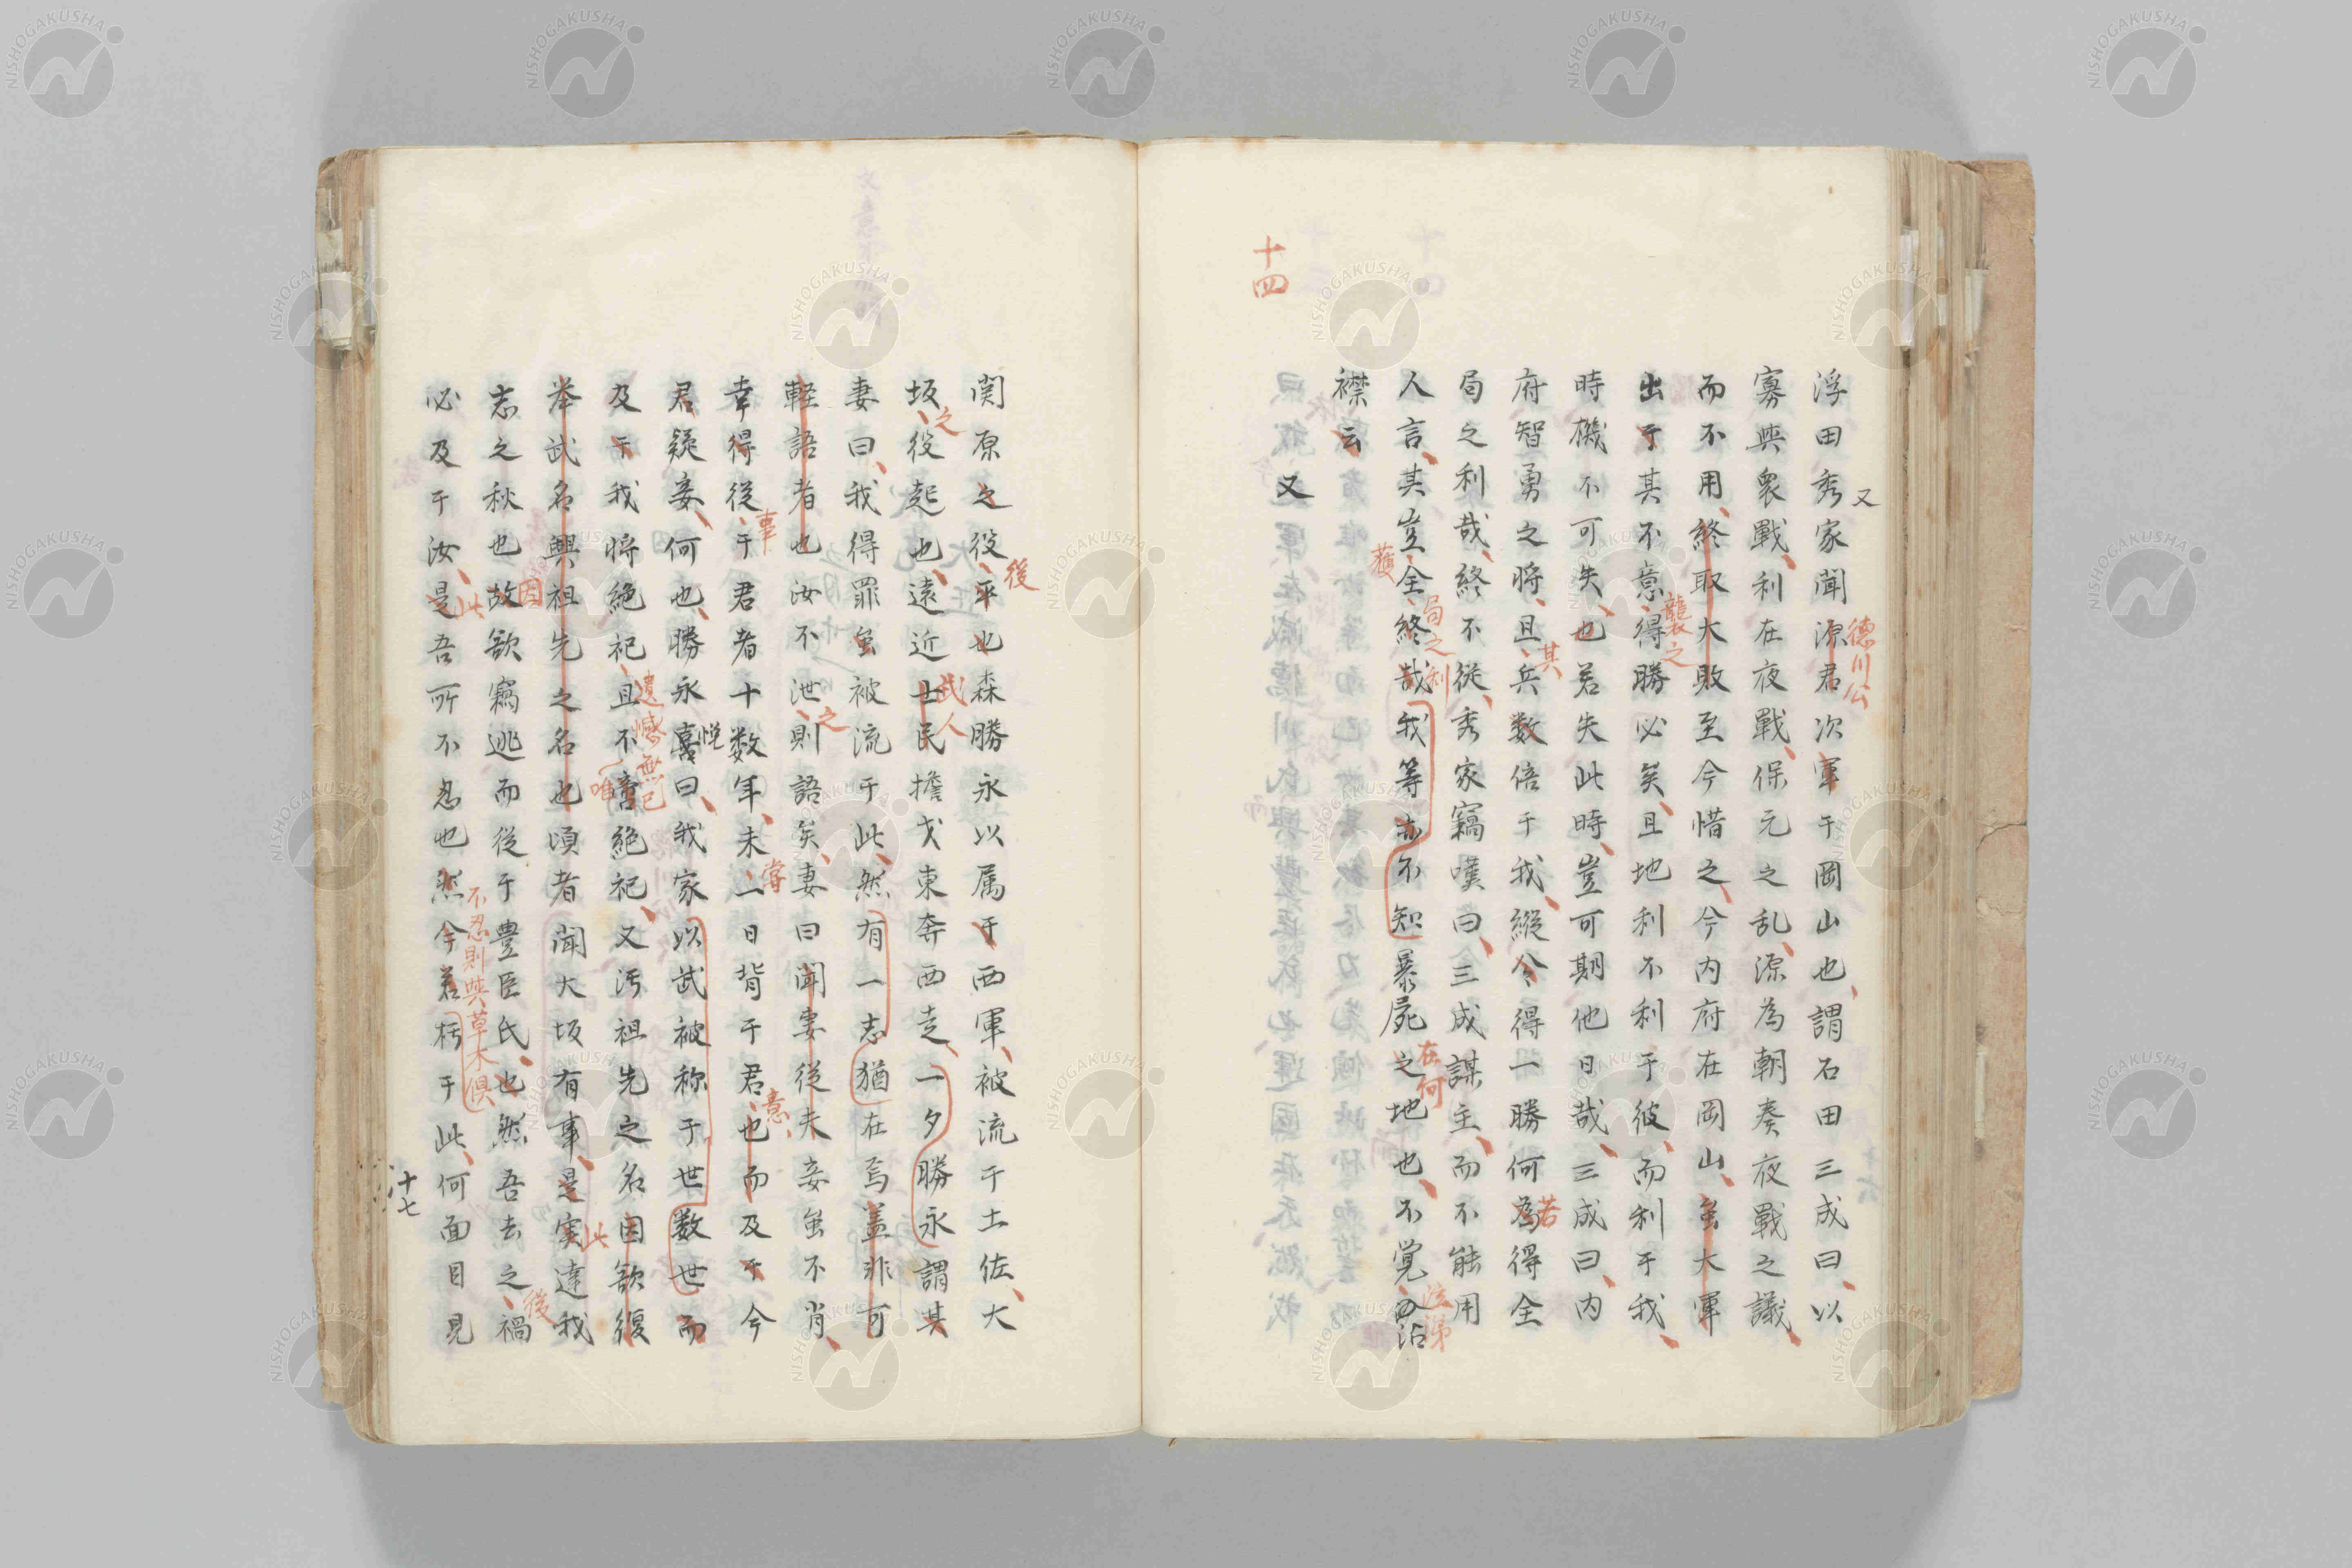 又
浮田秀家聞源君次軍于岡山也謂石田三成曰以
德川公
寡與衆戰利在夜戰保元之乱源為朝奏夜戰之議
而不用終取大敗至今惜之今内府在岡山虽大軍
襲之
出于其不意得勝必矣且地利不利于彼而利于我
時機不可失也若失此時豈可期他日哉三成曰内
其
若
府智勇之将且兵数倍于我縦令得一勝何為得全
局之利哉終不従秀家竊嘆曰三成謀主而不能用
獲
局之利
在何
泣涕
人言其豈全終哉我等亦不知暴屍之地也不覚沾
襟云
又
十四
後
関原之役平也森勝永以属于西軍被流于土佐大
之
武人
坂役起也遠近士民擔戈東奔西走一夕勝永謂其
妻曰我得罪虽被流于此然有一志猶在焉蓋非可
之
軽語者也汝不泄則語矣妻曰聞妻従夫妾虽不肖
事
嘗
意
幸得従于君者十数年未一日背于君也而及于今
悦
君疑妾何也勝永喜曰我家以武被称于世数世而
遺憾無已
唯
及于我将絶祀且不啻絶祀又汚祖先之名因欲復
此
挙武名興祖先之名也頃者聞大坂有事是実達我
因
後
志之秋也故欲竊逃而従于豊臣氏也然吾去之禍
此
不忍則與草木俱
必及于汝是吾所不忍也然今若朽于此何面目見
十七
NISHOGAKUSHA